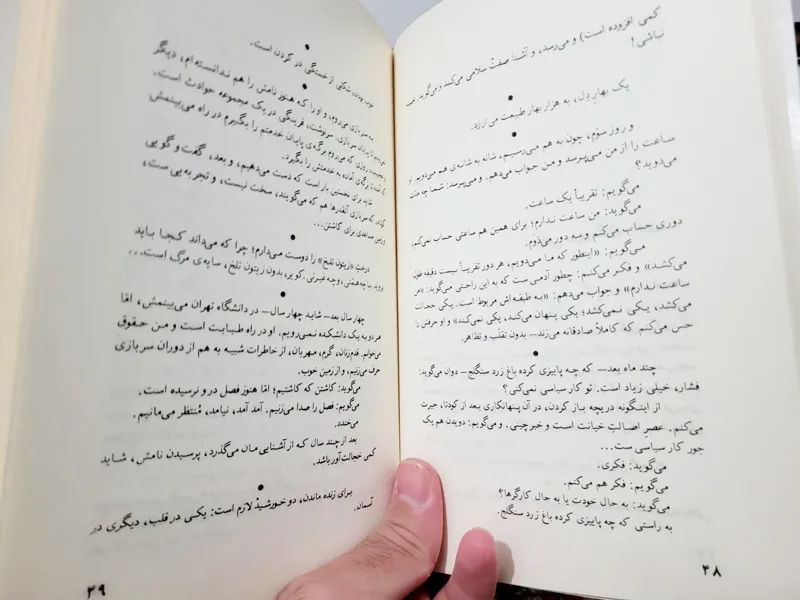 کمی افزوده است) و می‌رسد، و آشنا صفت سلامی می‌کند و می‌گوید: خسته
نباشی!
•
یک بهارِ دل، به هزار بهار طبیعت می‌ارزد.
•
و روز سوّم، چون به هم می‌رسیم، شانه به شانه‌ی هم می‌دویم. او
ساعت را از من می‌پرسد و من جواب می‌دهم. و می‌پرسد: شما چه مدّت
می‌دوید؟
می‌گویم: تقریباً یک ساعت.
می‌گوید: من ساعت ندارم؛ برای همین هم ساعتی حساب نمی‌کنم.
دوری حساب می‌کنم و سه دور می‌دوم.
می‌گویم: «اینطور که ما می‌دویم، هر دور تقریباً بیست دقیقه طول
می‌کشد.» و فکر می‌کنم: چطور آدمی ست که به این راحتی می‌گوید: «من
ساعت ندارم» و جواب می‌دهم: «به طبقه‌اش مربوط است. یکی خجالت
می‌کشد، یکی نمی‌کشد؛ یکی پنهان می‌کند، یکی نمی‌کند» و او حرفش را
حس می‌کنم که کاملاً صادقانه می‌زند– بدون تقلّب و تظاهر.
•
چند ماه بعد– که چه پاییزی کرده باغ زرد سنگلج– دوان می‌گوید:
فشار، خیلی زیاد است. تو کار سیاسی نمی‌کنی؟
از اینگونه دریچه باز کردن، در آن پنهانکاری بعد از کودتا، حیرت
می‌کنم. عصر اصالتِ خیانت است و خبرچینی. و می‌گویم: دویدن هم یک
جور کار سیاسی ست...
می‌گوید: فکری.
می‌گویم: فکر هم می‌کنم.
می‌گوید: به حال خودت یا به حال کارگرها؟
به راستی که چه پاییزی کرده باغ زرد سنگلج.
۴۸
خستگی در کردن است.
•
به سربازی می‌روم، و او را که هنوز نامش را هم ندانسته‌ام، دیگر
نمی‌بینم تا پایان سربازی. سرنوشت، فرینگی در یک مجموعه حوادث است.
روزی که می‌روم برگه‌ی پایان خدمتم را بگیرم در راه می‌بینمش
آماده به خدمتش را بگیرد.
شاید برای نخستین بار است که دست می‌دهیم، و بعد، گفت و گویی
کوتاه، که سربازی آنقدرها هم که می‌گویند، سخت نیست، و تجربه‌یی ست،
و زمین مساعدی برای کاشتن...
•
درختِ «زیتون تلخ» را دوست می‌دارم؛ چرا که می‌داند کجا باید
بروید. با چه همّتی، و چه غیرتی. کویر، بدون زیتون تلخ، سایه‌ی مرگ است...
•
چهار سال بعد– شاید چهار سال– در دانشگاه تهران می‌بینمش، امّا
هر دو به یک دانشکده نمی‌رویم. او در راه طبابت است و من حقوق
می‌خوانم. قدم‌زنان، گرم، مهربان، از خاطرات شبیه به هم از دوران سربازی
حرف می‌زنیم، و از زمین خوب.
می‌گوید: کاشتن که کاشتیم؛ امّا هنوز فصل درو نرسیده است.
می‌گویم: فصل را صدا می‌زنیم. آمد آمد، نیامد، مُنتظر می‌مانیم.
می‌خندد.
بعد از چند سال که از آشنایی‌مان می‌گذرد، پرسیدن نامش، شاید
کمی خجالت‌آور باشد.
•
برای زنده ماندن، دو خورشید لازم است: یکی در قلب، دیگری در
آسمان.
۴۹